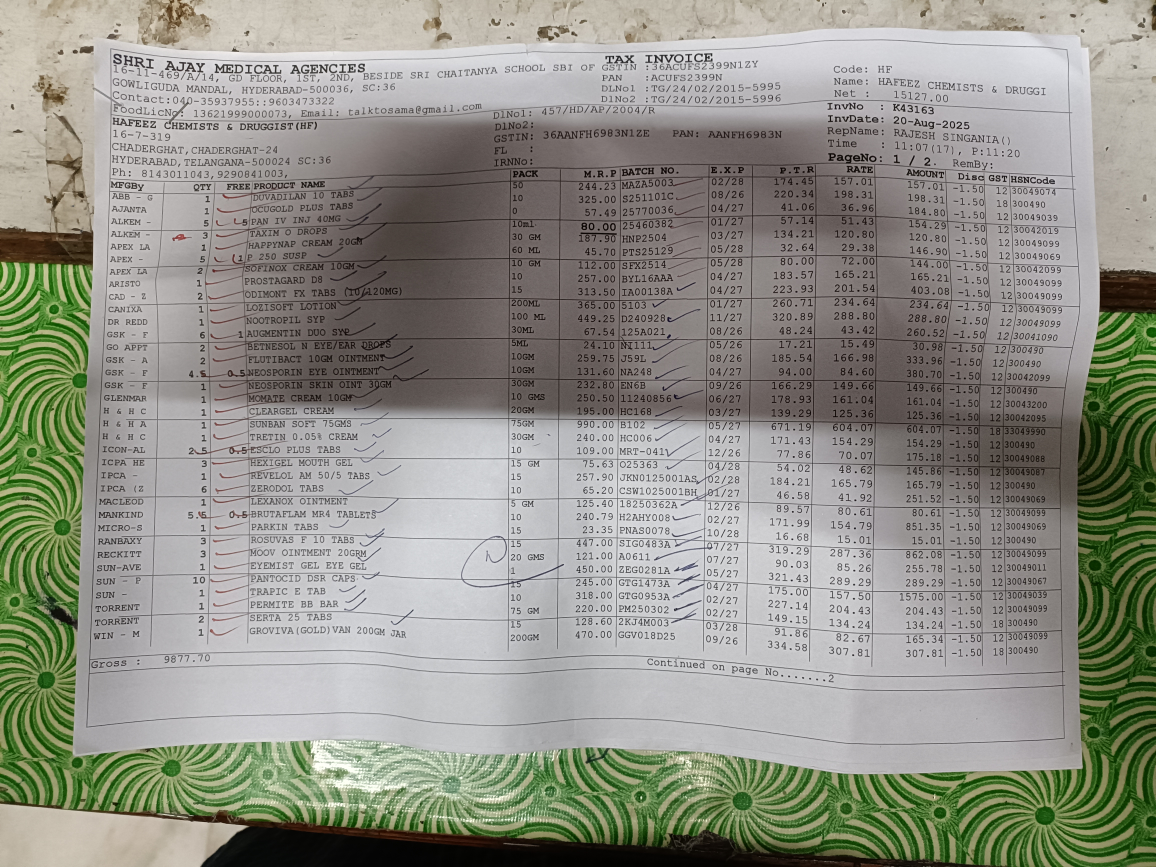 SHRI AJAY MEDICAL AGENCIES
16-11-469/A/14, GD FLOOR, 1ST, 2ND, BESIDE SRI CHAITANYA SCHOOL SBI OF
GOWLIGUDA MANDAL, HYDERABAD-500036, SC:36
Contact:040-35937955::9603473322
FoodLicNo: 13621999000073, Email: talktosama@gmail.com
TAX INVOICE
GSTIN :36ACUFS2399N1ZY
PAN :ACUFS2399N
DLNo1 :TG/24/02/2015-5995
DlNo2 :TG/24/02/2015-5996
Code: HF
Name: HAFEEZ CHEMISTS & DRUGGI
Net : 15127.00
HAFEEZ CHEMISTS & DRUGGIST(HF)
16-7-319
CHADERGHAT,CHADERGHAT-24
HYDERABAD,TELANGANA-500024 SC:36
Ph: 8143011043,9290841003,
DlNo1: 457/HD/AP/2004/R
DlNo2:
GSTIN: 36AANFH6983N1ZE PAN: AANFH6983N
FL :
IRNNo:
InvNo : K43163
InvDate: 20-Aug-2025
RepName: RAJESH SINGANIA()
Time : 11:07(17), P:11:20
PageNo: 1 / 2. RemBy:
MFGBy QTY FREE PRODUCT NAME PACK M.R.P BATCH NO. E.X.P P.T.R RATE AMOUNT Disc GST HSNCode
ABB - G 1 DUVADILAN 10 TABS 50 244.23 MAZA5003 02/28 174.45 157.01 157.01 -1.50 12 30049074
AJANTA 1 OCUGOLD PLUS TABS 10 325.00 S251101C 08/26 220.34 198.31 198.31 -1.50 18 300490
ALKEM - 5 .5 PAN IV INJ 40MG 0 57.49 25770036 04/27 41.06 36.96 184.80 -1.50 12 30049039
ALKEM - 3 TAXIM O DROPS 10ml 80.00 25460382 01/27 57.14 51.43 154.29 -1.50 12 30042019
APEX LA 1 HAPPYNAP CREAM 20GM 30 GM 187.90 HNP2504 03/27 134.21 120.80 120.80 -1.50 12 30049099
APEX - 5 (1 P 250 SUSP 60 ML 45.70 PTS25129 05/28 32.64 29.38 146.90 -1.50 12 30049069
APEX LA 2 SOFINOX CREAM 10GM 10 GM 112.00 SFX2514 05/28 80.00 72.00 144.00 -1.50 12 30042099
ARISTO 1 PROSTAGARD D8 10 257.00 BYL16AAA 04/27 183.57 165.21 165.21 -1.50 12 30049099
CAD - Z 2 ODIMONT FX TABS (10/120MG) 15 313.50 IA00138A 04/27 223.93 201.54 403.08 -1.50 12 30049099
CANIXA 1 LOZISOFT LOTION 200ML 365.00 5103 01/27 260.71 234.64 234.64 -1.50 12 30049099
DR REDD 1 NOOTROPIL SYP 100 ML 449.25 D240928 11/27 320.89 288.80 288.80 -1.50 12 30049099
GSK - F 6 1 AUGMENTIN DUO SYP 30ML 67.54 125A021 08/26 48.24 43.42 260.52 -1.50 12 30041090
GO APPT 2 BETNESOL N EYE/EAR DROPS 5ML 24.10 NI111 05/26 17.21 15.49 30.98 -1.50 12 300490
GSK - A 2 FLUTIBACT 10GM OINTMENT 10GM 259.75 J59L 08/26 185.54 166.98 333.96 -1.50 12 300490
GSK - F 4.5 0.5 NEOSPORIN EYE OINTMENT 10GM 131.60 NA248 04/27 94.00 84.60 380.70 -1.50 12 30042099
GSK - F 1 NEOSPORIN SKIN OINT 30GM 30GM 232.80 EN6B 09/26 166.29 149.66 149.66 -1.50 12 30043200
GLENMAR 1 MOMATE CREAM 10GM 10 GMS 250.50 11240856 06/27 178.93 161.04 161.04 -1.50 12 30042095
H & H C 1 CLEARGEL CREAM 20GM 195.00 HC168 03/27 139.29 125.36 125.36 -1.50 12
H & H A 1 SUNBAN SOFT 75GMS 75GM 990.00 B102 05/27 671.19 604.07 604.07 -1.50 18 33049990
H & H C 1 TRETIN 0.05% CREAM 30GM 240.00 HC006 04/27 171.43 154.29 154.29 -1.50 12 300490
ICON-AL 2.5 0.5 ESCLO PLUS TABS 10 109.00 MRT-041 12/26 77.86 70.07 175.18 -1.50 12 30049088
ICPA HE 3 HEXIGEL MOUTH GEL 15 GM 75.63 O25363 04/28 54.02 48.62 145.86 -1.50 12 30049087
IPCA - 1 REVELOL AM 50/5 TABS 15 257.90 JKN0125001AS 02/28 184.21 165.79 165.79 -1.50 12 300490
IPCA (Z 6 ZERODOL TABS 10 65.20 CSW1025001BH 01/27 46.58 41.92 251.52 -1.50 12 30049069
MACLEOD 1 LEXANOX OINTMENT 5 GM 125.40 18250362A 12/26 89.57 80.61 80.61 -1.50 12 300490
MANKIND 5.5 0.5 BRUTAFLAM MR4 TABLETS 10 240.79 H2AHY008 02/27 171.99 154.79 851.35 -1.50 12 30049069
MICRO-S 1 PARKIN TABS 15 23.35 PNAS0078 10/28 16.68 15.01 15.01 -1.50 12 300490
RANBAXY 3 ROSUVAS F 10 TABS 15 447.00 SIG0483A 07/27 319.29 287.36 862.08 -1.50 12 30049099
RECKITT 3 MOOV OINTMENT 20GRM 20 GMS 121.00 A0611 07/27 90.03 85.26 255.78 -1.50 12 30049011
SUN-AVE 1 EYEMIST GEL EYE GEL 1 450.00 ZEG0281A 05/27 321.43 289.29 289.29 -1.50 12 30049067
SUN - P 10 PANTOCID DSR CAPS 15 245.00 GTG1473A 04/27 175.00 157.50 1575.00 -1.50 12 30049039
SUN - 1 TRAPIC E TAB 10 318.00 GTG0953A 02/27 227.14 204.43 204.43 -1.50 12 30049039
TORRENT 1 PERMITE BB BAR 75 GM 220.00 PM250302 02/27 149.15 134.24 134.24 -1.50 18 300490
TORRENT 2 SERTA 25 TABS 15 128.60 2KJ4M003 03/28 91.86 82.67 165.34 -1.50 12 30049099
WIN - M 1 GROVIVA(GOLD)VAN 200GM JAR 200GM 470.00 GGV018D25 09/26 334.58 307.81 307.81 -1.50 18 300490
Gross : 9877.70
Continued on page No.......2